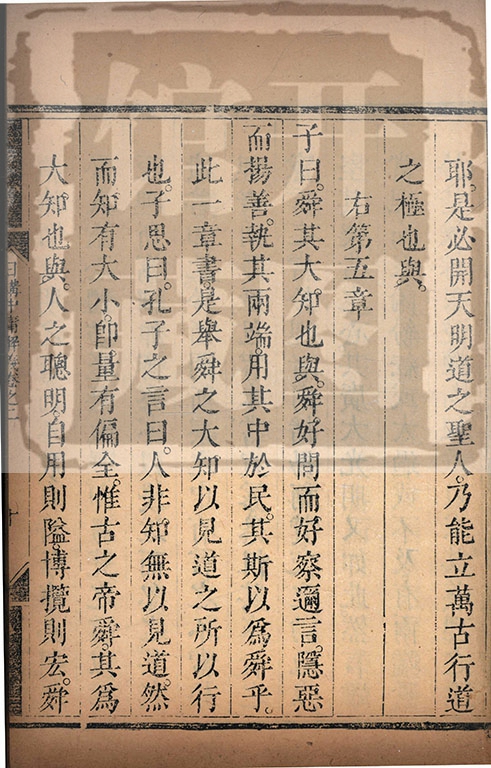 耶。是必開天明道之聖人。乃能立萬古行道
之極也與。
右第五章
子曰。舜其大知也與。舜好問而好察邇言。隱惡
而揚善。執其兩端。用其中於民。其斯以爲舜乎。
此一章書。是舉舜之大知以見道之所以行
也。子思曰。孔子之言曰。人非知無以見道。然
而知有大小。卽量有偏全。惟古之帝舜。其爲
大知也與。人之聰明。自用則隘。博攬則宏。舜
日講中庸解義卷之二
十